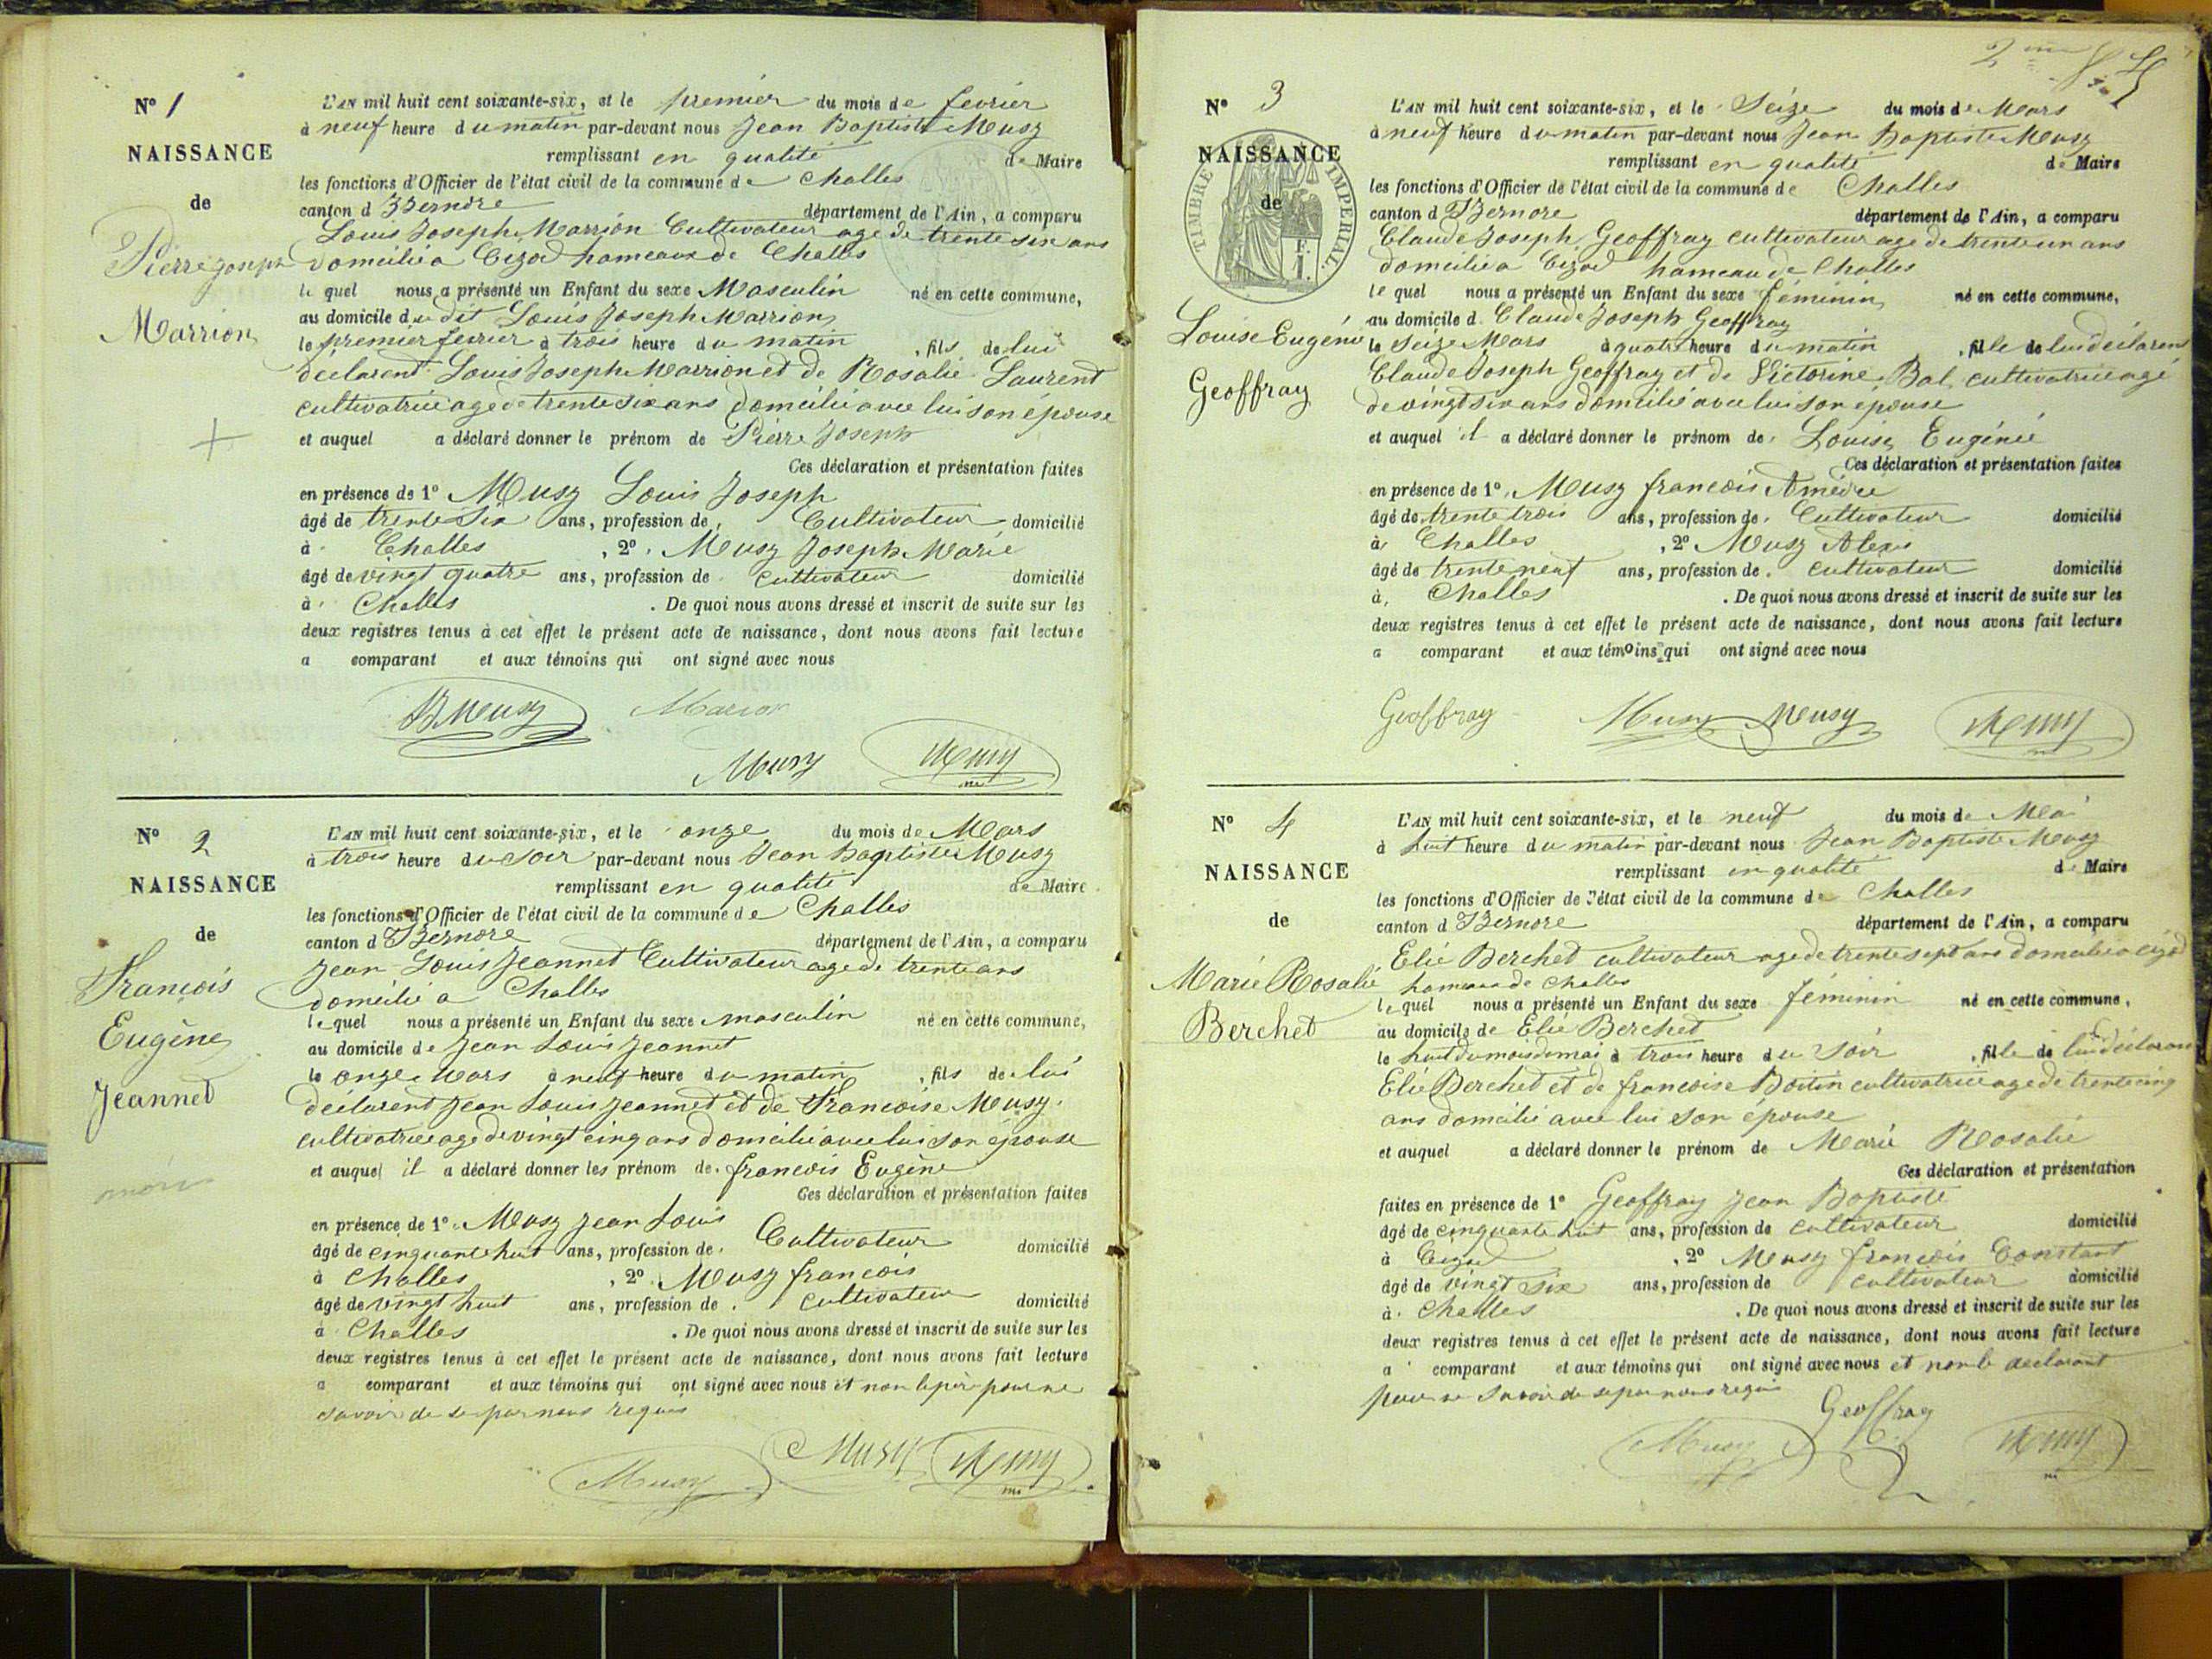 N° 1
NAISSANCE
de
Pierre Joseph
Marrion
L'AN mil huit cent soixante-six, et le premier du mois de fevrier
à neuf heure du matin par-devant nous Jean Baptiste Musy
remplissant en qualité de Maire
les fonctions d'Officier de l'état civil de la commune de Challes
canton d Bernore département de l'Ain, a comparu
Louis Joseph Marrion Cultivateur age de trente six ans
domcilié a Cizod hameaux de Challes
le quel nous a présenté un Enfant du sexe Masculin né en cette commune,
au domicile du dit Louis Joseph Marrion
le premier fevrier à trois heure du matin, fils de lui
déclarent Louis Joseph Marrion et de Rosalie Laurent
cultivatrice age de trente six ans domcilié avec lui son épouse
et auquel a déclaré donner le prénom de Pierre Joseph
Ces déclaration et présentation faites
en présence de 1° Musy Louis Joseph
âgé de trente six ans, profession de Cultivateur domicilié
à Challes, 2° Musy Joseph Marie
âgé de vingt quatre ans, profession de cultivateur domicilié
à Challes. De quoi nous avons dressé et inscrit de suite sur les
deux registres tenus à cet effet le présent acte de naissance, dont nous avons fait lecture
a comparant et aux témoins qui ont signé avec nous
B Musy Marion
Musy Musy
N° 2
NAISSANCE
de
François
Eugène
Jeannet
L'AN mil huit cent soixante-six, et le onze du mois de Mars
à trois heure du soir par-devant nous Jean Baptiste Musy
remplissant en qualité de Maire
les fonctions d'Officier de l'état civil de la commune de Challes
canton d Bernore département de l'Ain, a comparu
Jean Louis Jeannet Cultivateur age de trente ans
domcilié a Challes
le quel nous a présenté un Enfant du sexe masculin né en cette commune,
au domicile de Jean Louis Jeannet
le onze Mars à neuf heure du matin, fils de lui
déclarent Jean Louis Jeannet et de Francoise Musy
cultivatrice age de vingt cinq ans domcilié avec lui son épouse
et auquel il a déclaré donner les prénom de francois Eugène
Ces déclaration et présentation faites
en présence de 1° Musy Jean Louis
âgé de cinquante huit ans, profession de Cultivateur domicilié
à Challes, 2° Musy francois
âgé de vingt huit ans, profession de cultivateur domicilié
à Challes. De quoi nous avons dressé et inscrit de suite sur les
deux registres tenus à cet effet le présent acte de naissance, dont nous avons fait lecture
a comparant et aux témoins qui ont signé avec nous et non le père pour ne
savoir de ce par nous requis
Musy Musy Musy
N° 3
NAISSANCE
de
TIMBRE IMPERIAL
Louise Eugénie
Geoffray
L'AN mil huit cent soixante-six, et le Seize du mois de Mars
à neuf heure du matin par-devant nous Jean Baptiste Musy
remplissant en qualité de Maire
les fonctions d'Officier de l'état civil de la commune de Challes
canton d Bernore département de l'Ain, a comparu
Claude Joseph Geoffray cultivateur age de trente un ans
domcilié a Cizod hameau de Challes
le quel nous a présenté un Enfant du sexe féminin né en cette commune,
au domicile d Claude Joseph Geoffray
le Seize Mars à quatre heure du matin, file de lui déclarent
Claude Joseph Geoffray et de Victorine Bal cultivatrice agé
de vingt six ans domcilié avec lui son epouse
et auquel il a déclaré donner le prénom de Louise Eugénié
Ces déclaration et présentation faites
en présence de 1° Musy francois Amédée
âgé de trente trois ans, profession de Cultivateur domicilié
à Challes, 2° Musy Alexis
âgé de trente neuf ans, profession de cultivateur domicilié
à Challes. De quoi nous avons dressé et inscrit de suite sur les
deux registres tenus à cet effet le présent acte de naissance, dont nous avons fait lecture
a comparant et aux témoins qui ont signé avec nous
Geoffray Musy Musy Musy
N° 4
NAISSANCE
de
Marié Rosalié
Berchet
L'AN mil huit cent soixante-six, et le neuf du mois de Mai
à huit heure du matin par-devant nous Jean Baptiste Musy
remplissant en qualité de Maire
les fonctions d'Officier de l'état civil de la commune de Challes
canton d Bernore département de l'Ain, a comparu
Elié Berchet cultivateur age de trente sept ans domcilié a Cizod
hameau de Challes
le quel nous a présenté un Enfant du sexe féminin né en cette commune,
au domicile de Elié Berchet
le huit du mois de mai à trois heure du soir, file de lui déclarant
Elié Berchet et de francoise Boitin cultivatrice age de trente cinq
ans domcilié avec lui son épouse
et auquel a déclaré donner le prénom de Marié Rosalié
Ces déclaration et présentation
faites en présence de 1° Geoffray Jean Baptiste
âgé de cinquante huit ans, profession de cultivateur domicilié
à Cizod, 2° Musy francois Constant
âgé de vingt six ans, profession de cultivateur domicilié
à Challes. De quoi nous avons dressé et inscrit de suite sur les
deux registres tenus à cet effet le présent acte de naissance, dont nous avons fait lecture
a comparant et aux témoins qui ont signé avec nous et non le declarant
pour ne savoir de ce par nous requis
Geoffray
Musy Musy